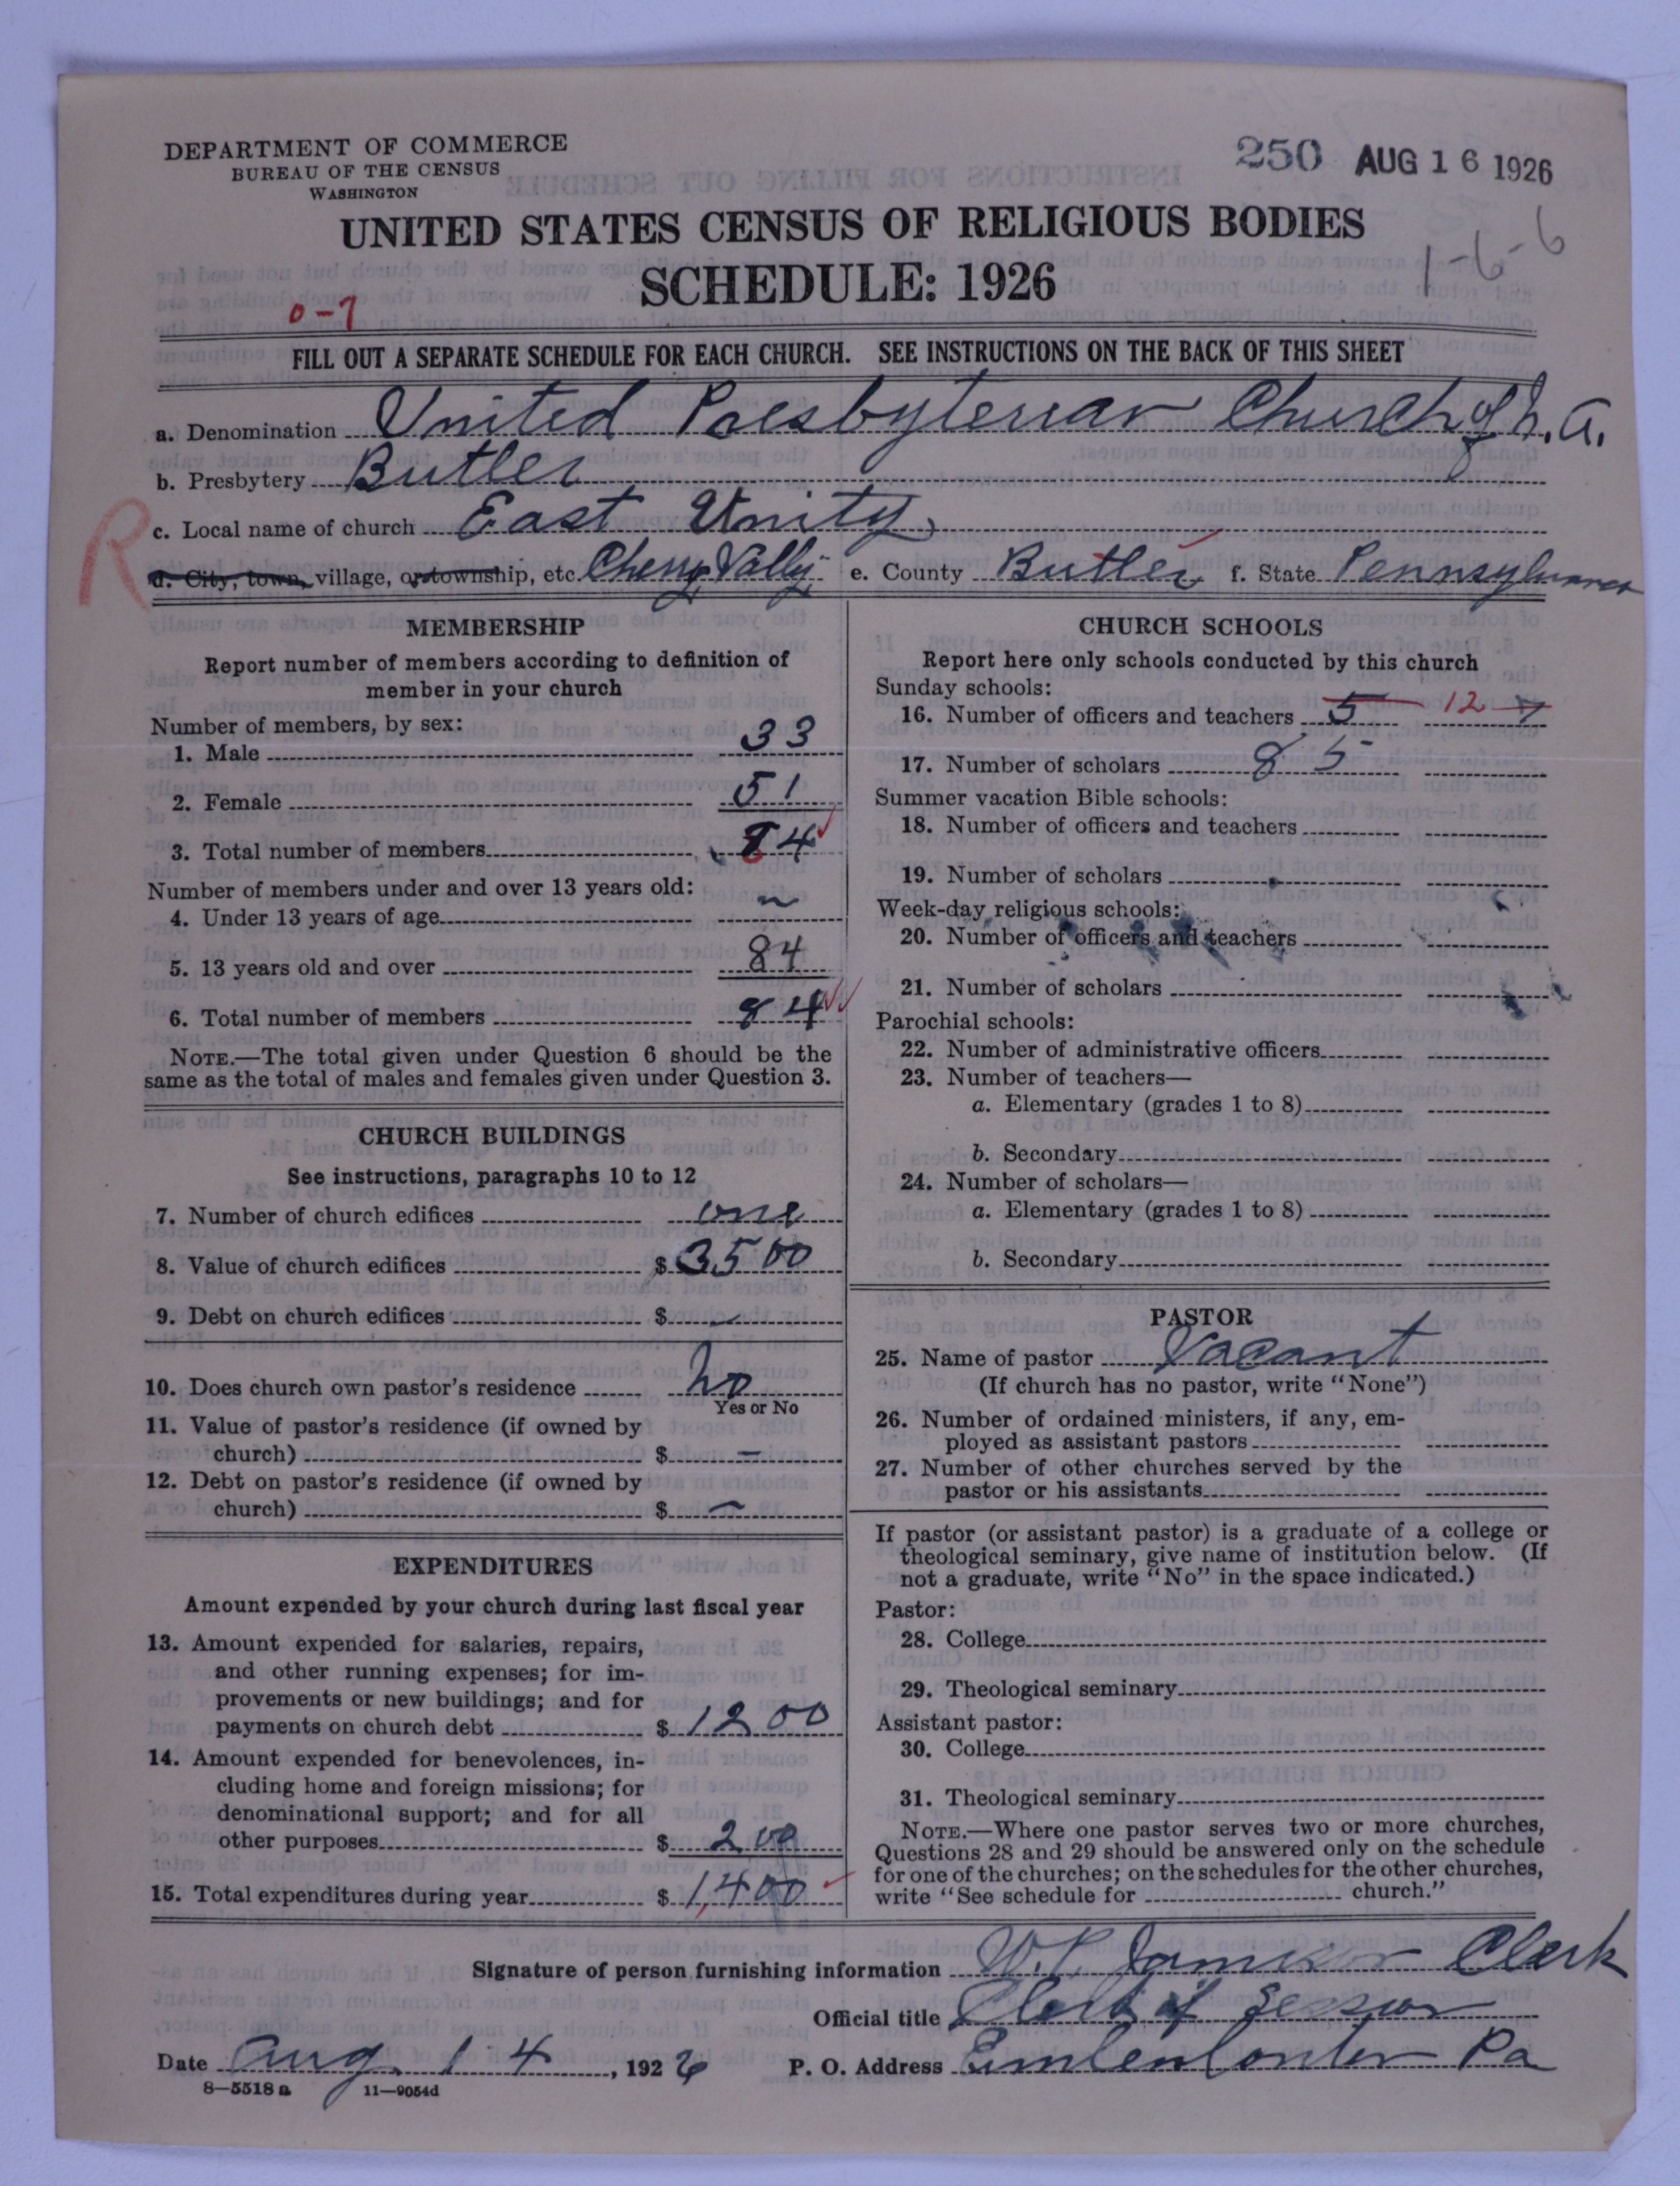 DEPARTMENT OF COMMERCE
BUREAU OF THE CENSUS
WASHINGTON
250 AUG 16 1926
UNITED STATES CENSUS OF RELIGIOUS BODIES
1-6-6
SCHEDULE: 1926
0-7
FILL OUT A SEPARATE SCHEDULE FOR EACH CHURCH. SEE INSTRUCTIONS ON THE BACK OF THIS SHEET
a. Denomination United Presbyterian Church of N. A.
b. Presbytery Butler
R
c. Local name of church East Unity
d. City, town, village, or township, etc. Cherry Vally e. County Butler f. State Pennsylvania
MEMBERSHIP
Report number of members according to definition of
member in your church
Number of members, by sex:
1. Male 33
2. Female 51
3. Total number of members 84
Number of members under and over 13 years old:
4. Under 13 years of age ~
5. 13 years old and over 84
6. Total number of members 84
NOTE.—The total given under Question 6 should be the
same as the total of males and females given under Question 3.
CHURCH BUILDINGS
See instructions, paragraphs 10 to 12
7. Number of church edifices one
8. Value of church edifices $ 3500
9. Debt on church edifices $ —
10. Does church own pastor's residence No
Yes or No
11. Value of pastor's residence (if owned by
church) $ —
12. Debt on pastor's residence (if owned by
church) $ —
EXPENDITURES
Amount expended by your church during last fiscal year
13. Amount expended for salaries, repairs,
and other running expenses; for im-
provements or new buildings; and for
payments on church debt $ 1200
14. Amount expended for benevolences, in-
cluding home and foreign missions; for
denominational support; and for all
other purposes $ 200
15. Total expenditures during year $ 1,400
CHURCH SCHOOLS
Report here only schools conducted by this church
Sunday schools:
16. Number of officers and teachers 5 12 7
17. Number of scholars 85
Summer vacation Bible schools:
18. Number of officers and teachers
19. Number of scholars
Week-day religious schools:
20. Number of officers and teachers
21. Number of scholars
Parochial schools:
22. Number of administrative officers
23. Number of teachers—
a. Elementary (grades 1 to 8)
b. Secondary
24. Number of scholars—
a. Elementary (grades 1 to 8)
b. Secondary
PASTOR
25. Name of pastor Vacant
(If church has no pastor, write "None")
26. Number of ordained ministers, if any, em-
ployed as assistant pastors
27. Number of other churches served by the
pastor or his assistants
If pastor (or assistant pastor) is a graduate of a college or
theological seminary, give name of institution below. (If
not a graduate, write "No" in the space indicated.)
Pastor:
28. College
29. Theological seminary
Assistant pastor:
30. College
31. Theological seminary
NOTE.—Where one pastor serves two or more churches,
Questions 28 and 29 should be answered only on the schedule
for one of the churches; on the schedules for the other churches,
write "See schedule for church."
Signature of person furnishing information W. P. Jamison Clerk
Official title Clerk of Session
Date Aug. 14, 1926 P. O. Address Pa
8—5518 a 11—9054d